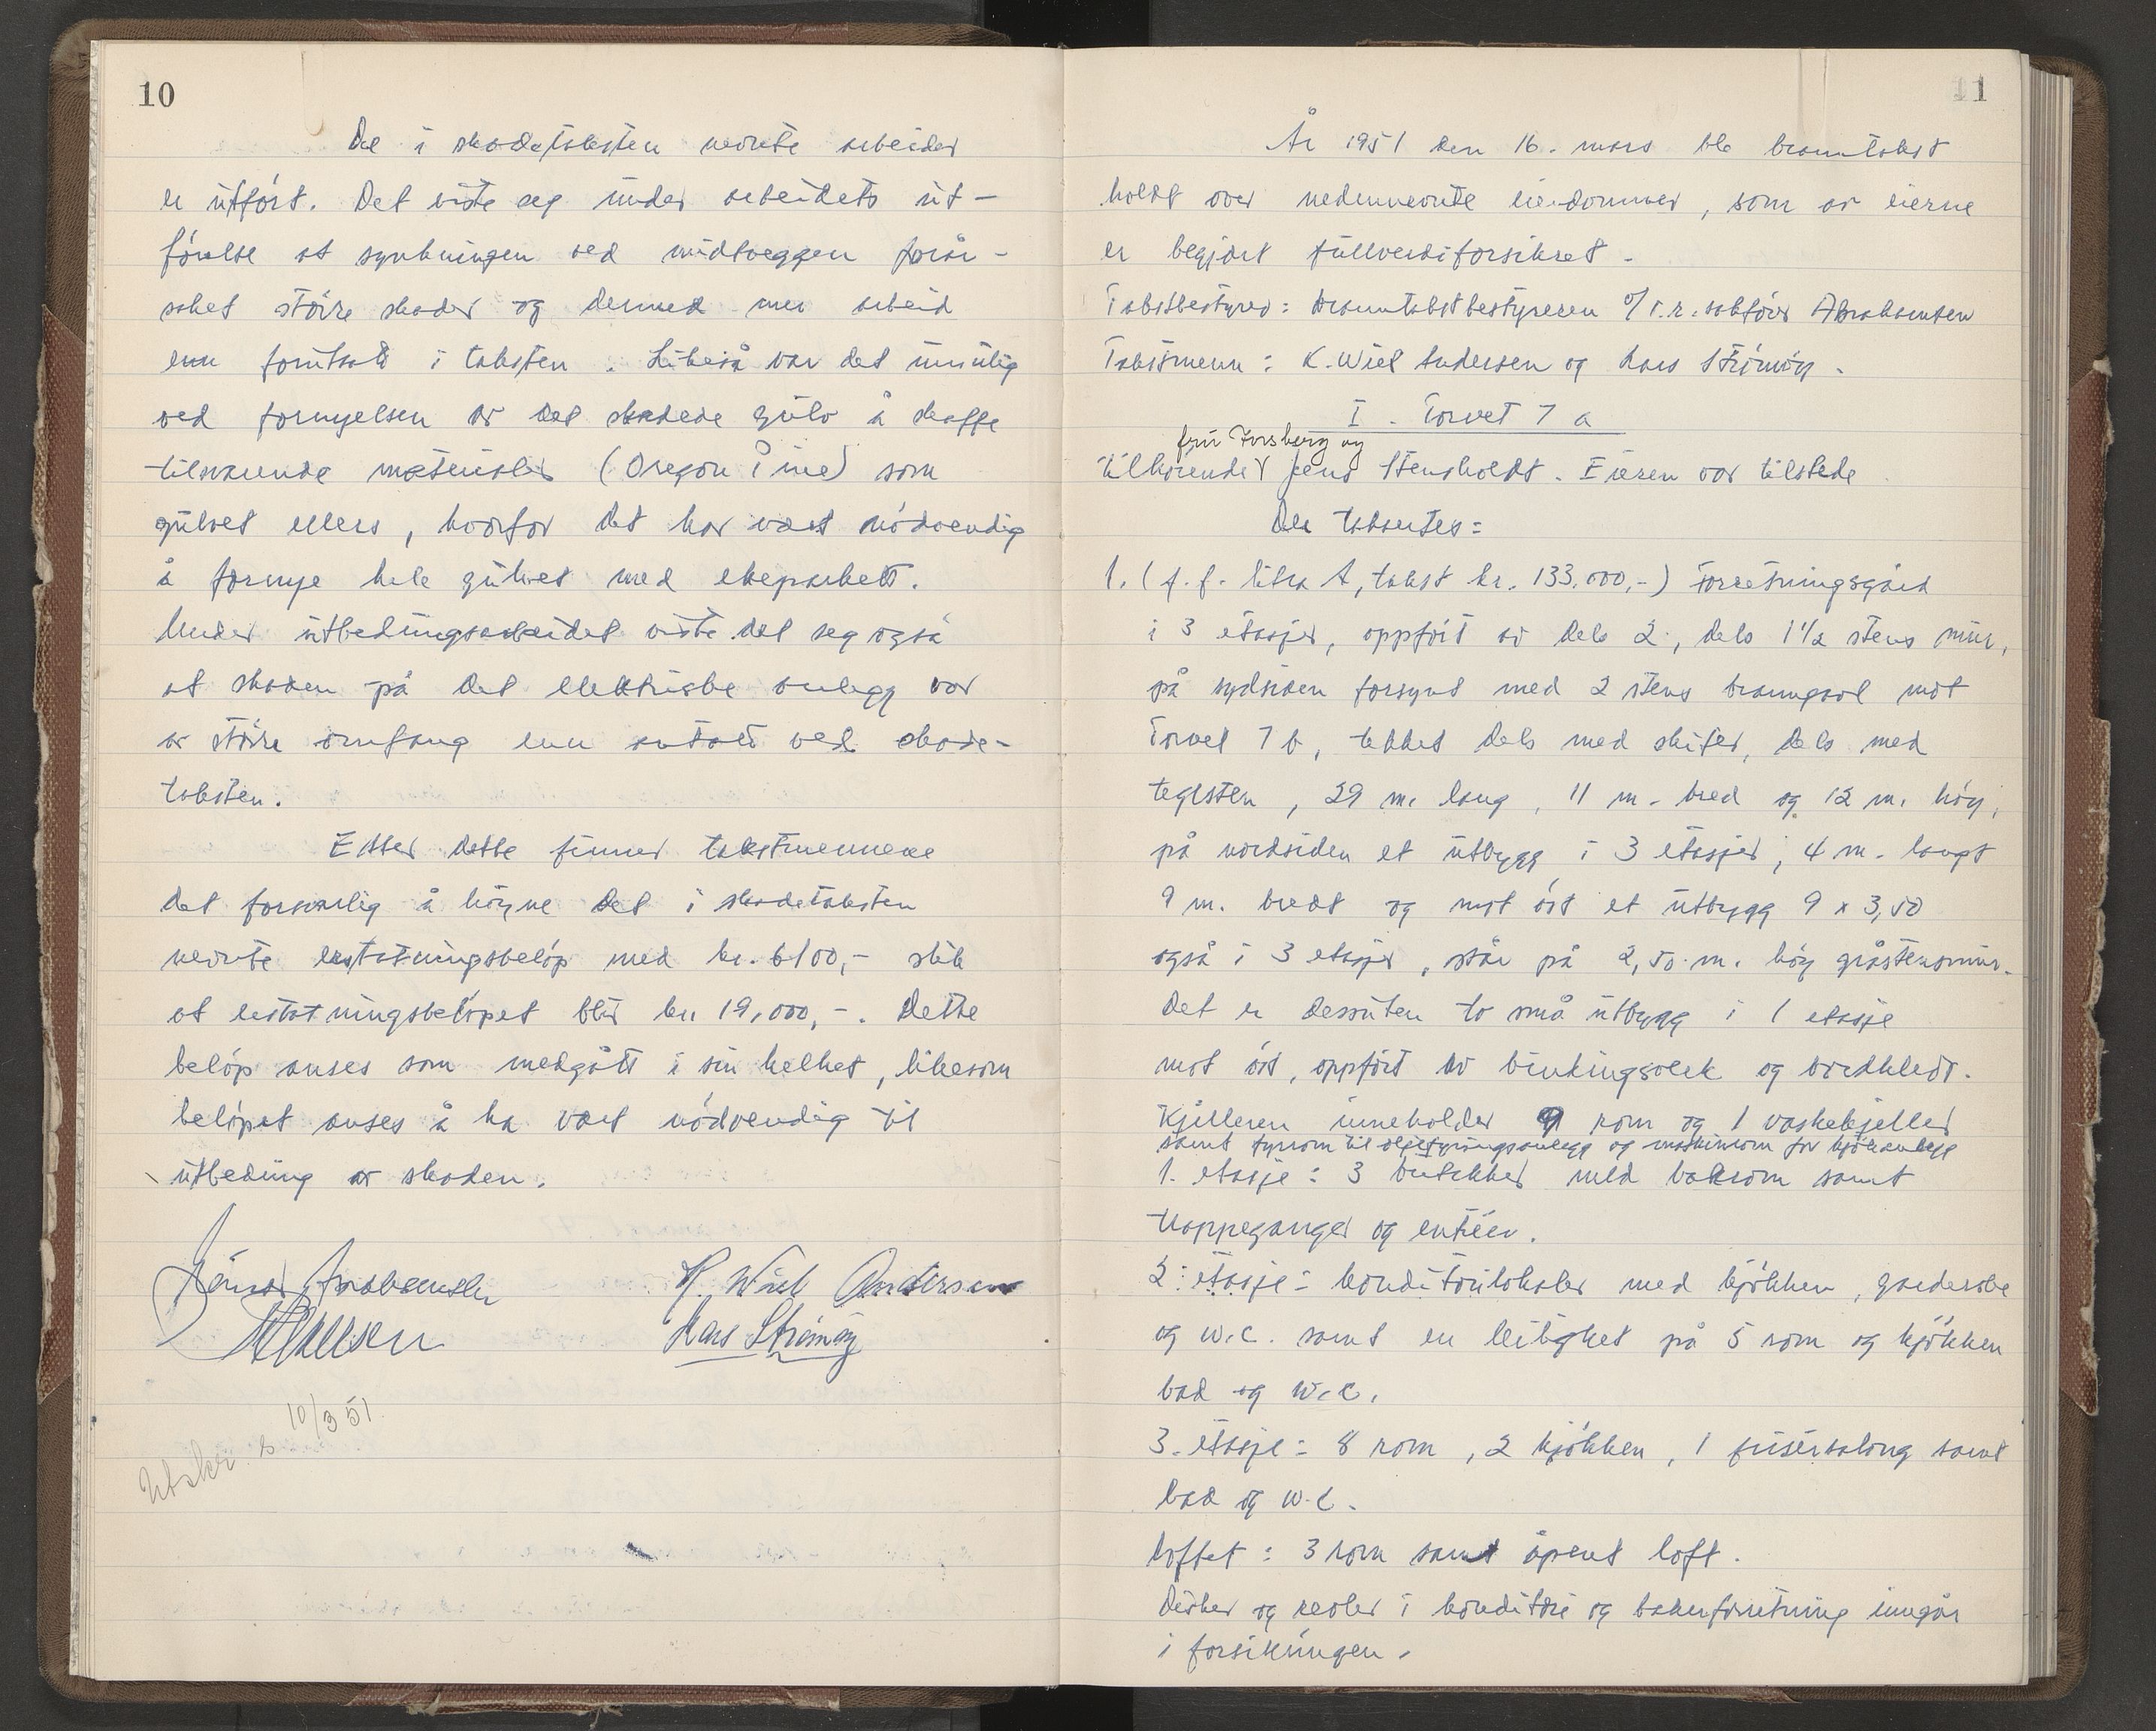 10
De i skadetaksten nevnte arbeider
er utført. Det viste seg under arbeidets ut-
førelse at synkningen ved midtveggen forår-
saket større skader og dermed mer arbeid
enn forutsatt i taksten. Likeså var det umulig
ved fornyelsen av det skadede gulv å skaffe
tilsvarende materialer (Oregon Pine) som
gulvet ellers, hvorfor det har vært nødvendig
å fornye hele gulvet med ekeparkett.
Under utbedringsarbeidet viste det seg også
at skaden på det elektriske anlegg var
av større omfang enn antatt ved skade-
taksten.
Etter dette finner takstmennene
det forsvarlig å høyne det i skadetaksten
nevnte erstatningsbeløp med kr. 6100,- slik
at erstatningsbeløpet blir kr. 19.000,-. Dette
beløp anses som medgått i sin helhet, likesom
beløpet anses å ha vært nødvendig til
utbedring av skaden.
Abrahamsen K. Wiel Andersen
Hans Strømøy
Utskr. 10/3 51
11
År 1951 den 16. mars ble branntakst
holdt over nedennevnte eiendommer, som av eierne
er begjært fullverdiforsikret.
Takstbestyrer: Branntakstbestyreren v/ o.r.sakfører Abrahamsen
Takstmenn: K. Wiel Andersen og Hans Strømøy.
I. Torvet 7 a
fru Forsberg og
tilhørende Jens Stensholdt. Eieren var tilstede
Der takseres:
1. (f.f. litra A, takst kr. 133.000,-) Forretningsgård
i 3 etasjer, oppført av dels 2, dels 1 1/2 stens mur,
på sydsiden forsynt med 2 stens branngavl mot
Torvet 7 b, tekket dels med skifer, dels med
teglsten, 29 m. lang, 11 m. bred og 12 m. høy,
på nordsiden et utbygg i 3 etasjer, 4 m. langt
9 m. bredt og mot øst et utbygg 9 x 3,50
også i 3 etasjer, står på 2,50 m. høy gråstensmur.
Det er dessuten to små utbygg i 1 etasje
mot øst, oppført av bindingsverk og bordkledt.
Kjelleren inneholder 9 rom og 1 vaskekjeller
samt fyrrom til oljefyringsanlegg og maskinrom for kjøleanlegg
1. etasje: 3 butikker med bakrom samt
trappeganger og entréer.
2. etasje: konditorilokaler med kjøkken, garderobe
og w.c. samt en leilighet på 5 rom og kjøkken
bad og w.c.
3. etasje: 8 rom, 2 kjøkken, 1 frisersalong samt
bad og w.c.
Loftet: 3 rom samt åpent loft.
Disker og reoler i konditori og bakerforretning inngår
i forsikringen.